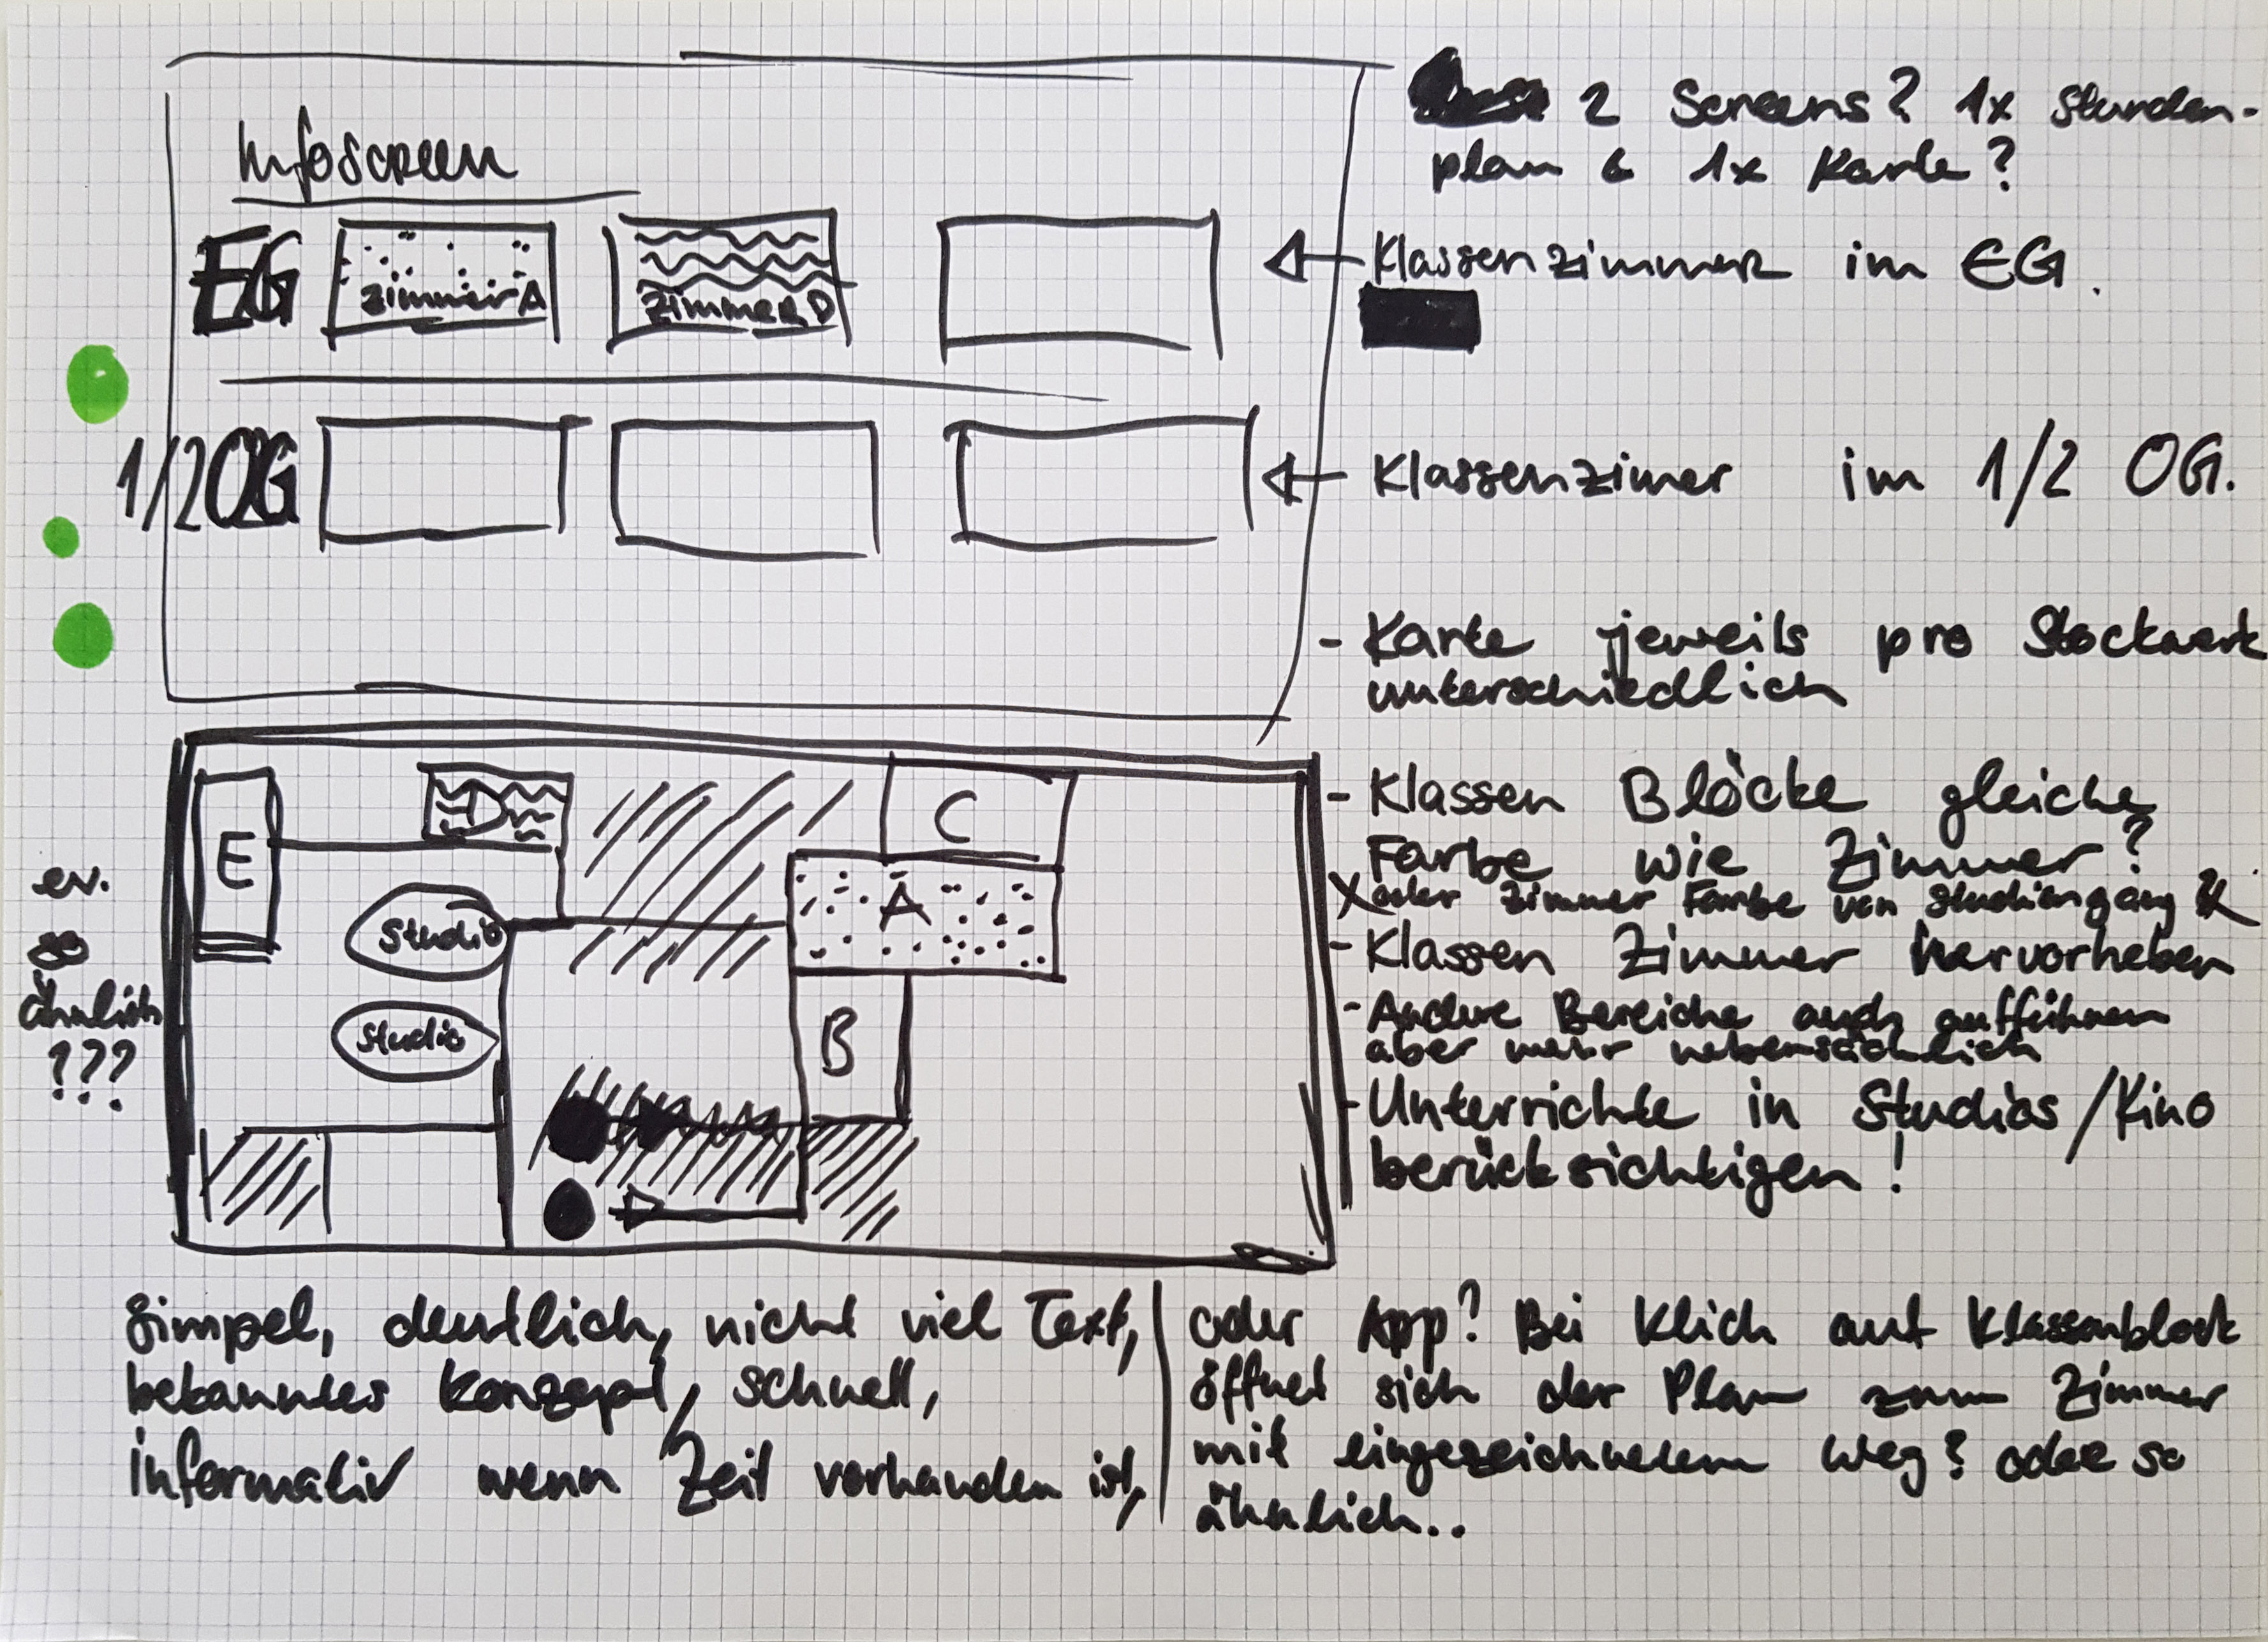 Infoscreen
EG
Zimmer A
Zimmer D
1/2OG
2 Screens? 1x Stunden-
plan & 1x Karte?
Klassenzimmer im EG.
Klassenzimer im 1/2 OG.
- Karte jeweils pro Stockwerk
unterschiedlich
- Klassen Blöcke gleiche
Farbe wie Zimmer?
X oder Zimmer Farbe von Studiengang X
- Klassen Zimmer hervorheben
- Andere Bereiche auch aufführen
aber mehr nebensächlich
- Unterrichte in Studios/Kino
berücksichtigen!
E
D
C
A
B
Studio
Studio
ev.
so
ähnlich
???
Simpel, deutlich, nicht viel Text,
bekanntes Konzept, schnell,
informativ wenn Zeit vorhanden ist,
oder App? Bei Klick auf Klassenblock
öffnet sich der Plan zum Zimmer
mit eingezeichnetem Weg? oder so
ähnlich..